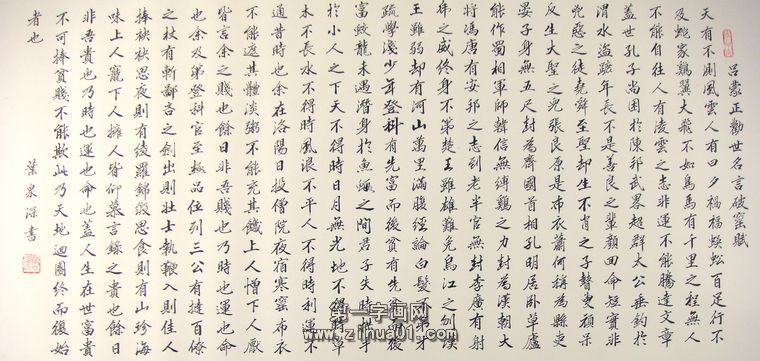 呂蒙正勸世名言破窰賦
天有不測風雲人有旦夕禍福蜈蚣百足行不
及蛇家鷄翼大飛不如鳥馬有千里之程無人
不能自往人有凌雲之志非運不能騰達文章
蓋世孔子尚困於陳邦武畧超群太公垂釣於
渭水盜跖年長不是善良之輩顏回命短實非
兇惡之徒堯舜至聖却生不肖之子瞽叟頑呆
反生大聖之兒張良原是布衣蕭何稱為縣吏
晏子身無五尺封為齊國首相孔明居卧草廬
能作蜀相軍師韓信無縛鷄之力封為漢朝大
將馮唐有安邦之志到老半官無封李廣有射
虎之威終身不第楚王雖雄難免烏江之刎漢
王雖弱却有河山萬里滿腹經論白髮不第才
疏學淺少年登科有先富而後貧有先貧後
富蛟龍未遇潛身於魚鱉之間君子失時
於小人之下天不得時日月無光地不得時草
木不長水不得時風浪不平人不得時利運不
通昔時也余在洛陽日投僧院夜宿寒窰布衣
不能遮其體淡粥不能充其饑上人憎下人厭
皆言余之賤也餘日非吾賤也乃時也運也命
也余及第登科官至極品位列三公有撻百僚
之杖有斬鄙吝之劍出則壯士執鞭入則佳人
捧袂思則有綾羅錦緞思食則有山珍海
味上人寵下人擁人皆仰慕言錄之貴也餘日
非吾貴也乃時也運也命也蓋人生在世富貴
不可捧貧賤不能欺此乃天地迴圓終而復始
者也
葉果深書
第一字画网
www.zihua01.com